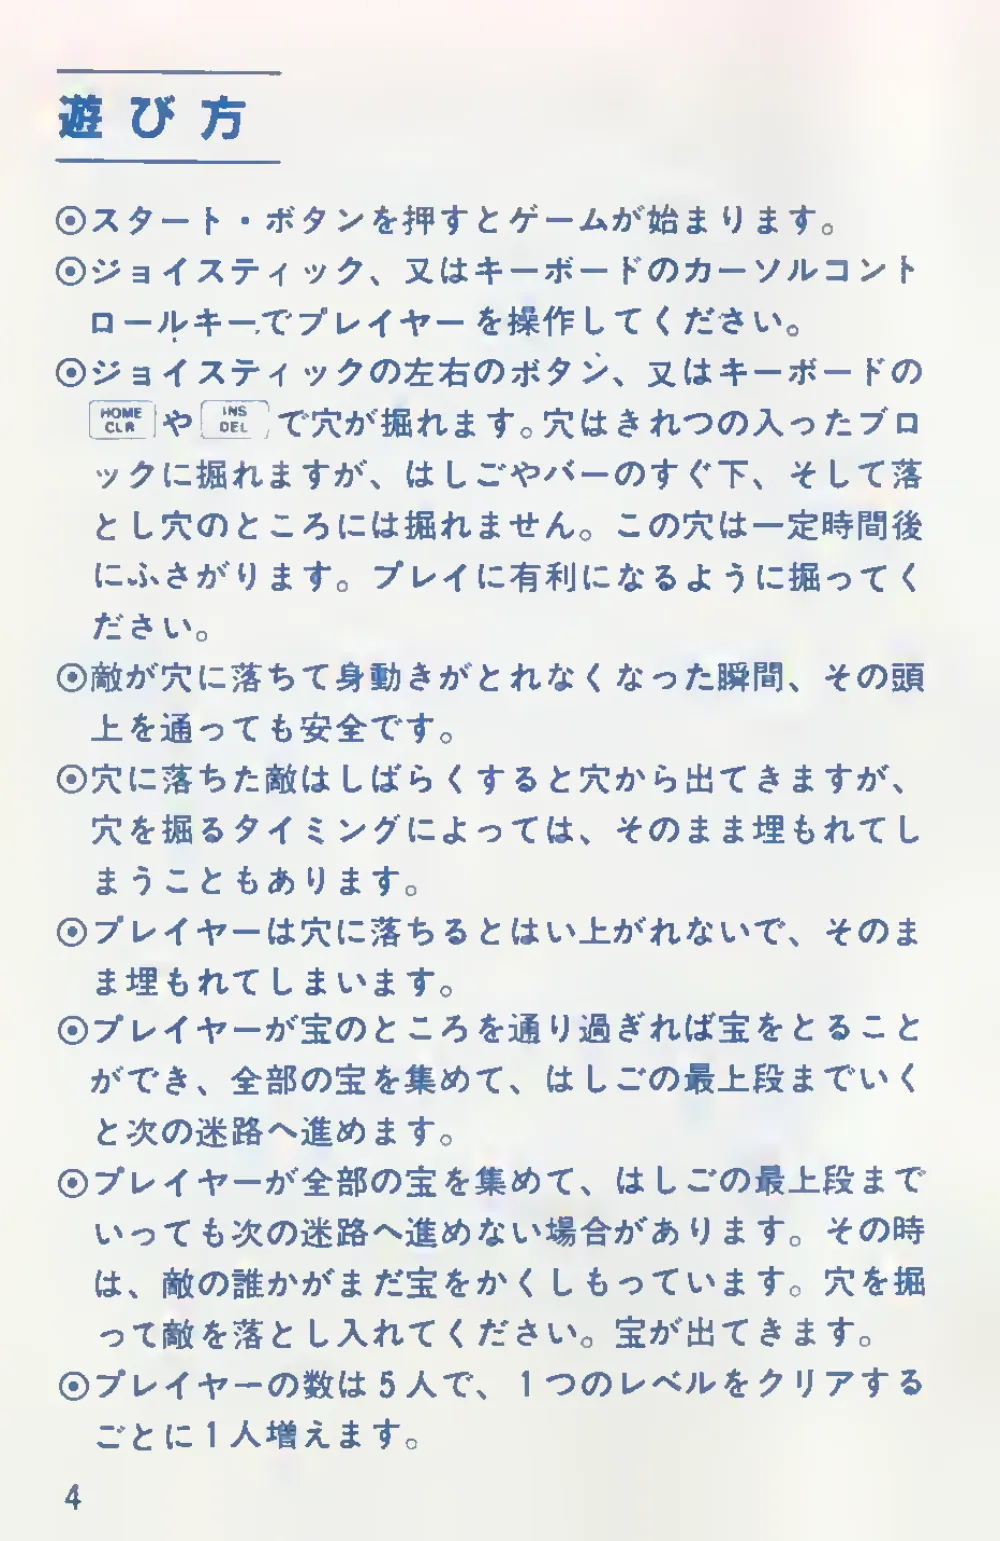 遊び方
⦿スタート・ボタンを押すとゲームが始まります。
⦿ジョイスティック、又はキーボードのカーソルコント
ロールキーでプレイヤーを操作してください。
⦿ジョイスティックの左右のボタン、又はキーボードの
HOME CLR や INS DEL で穴が掘れます。穴はきれつの入ったブロ
ックに掘れますが、はしごやバーのすぐ下、そして落
とし穴のところには掘れません。この穴は一定時間後
にふさがります。プレイに有利になるように掘ってく
ださい。
⦿敵が穴に落ちて身動きがとれなくなった瞬間、その頭
上を通っても安全です。
⦿穴に落ちた敵はしばらくすると穴から出てきますが、
穴を掘るタイミングによっては、そのまま埋もれてし
まうこともあります。
⦿プレイヤーは穴に落ちるとはい上がれないで、そのま
ま埋もれてしまいます。
⦿プレイヤーが宝のところを通り過ぎれば宝をとること
ができ、全部の宝を集めて、はしごの最上段までいく
と次の迷路へ進めます。
⦿プレイヤーが全部の宝を集めて、はしごの最上段まで
いっても次の迷路へ進めない場合があります。その時
は、敵の誰かがまだ宝をかくしもっています。穴を掘
って敵を落とし入れてください。宝が出てきます。
⦿プレイヤーの数は5人で、1つのレベルをクリアする
ごとに1人増えます。
4